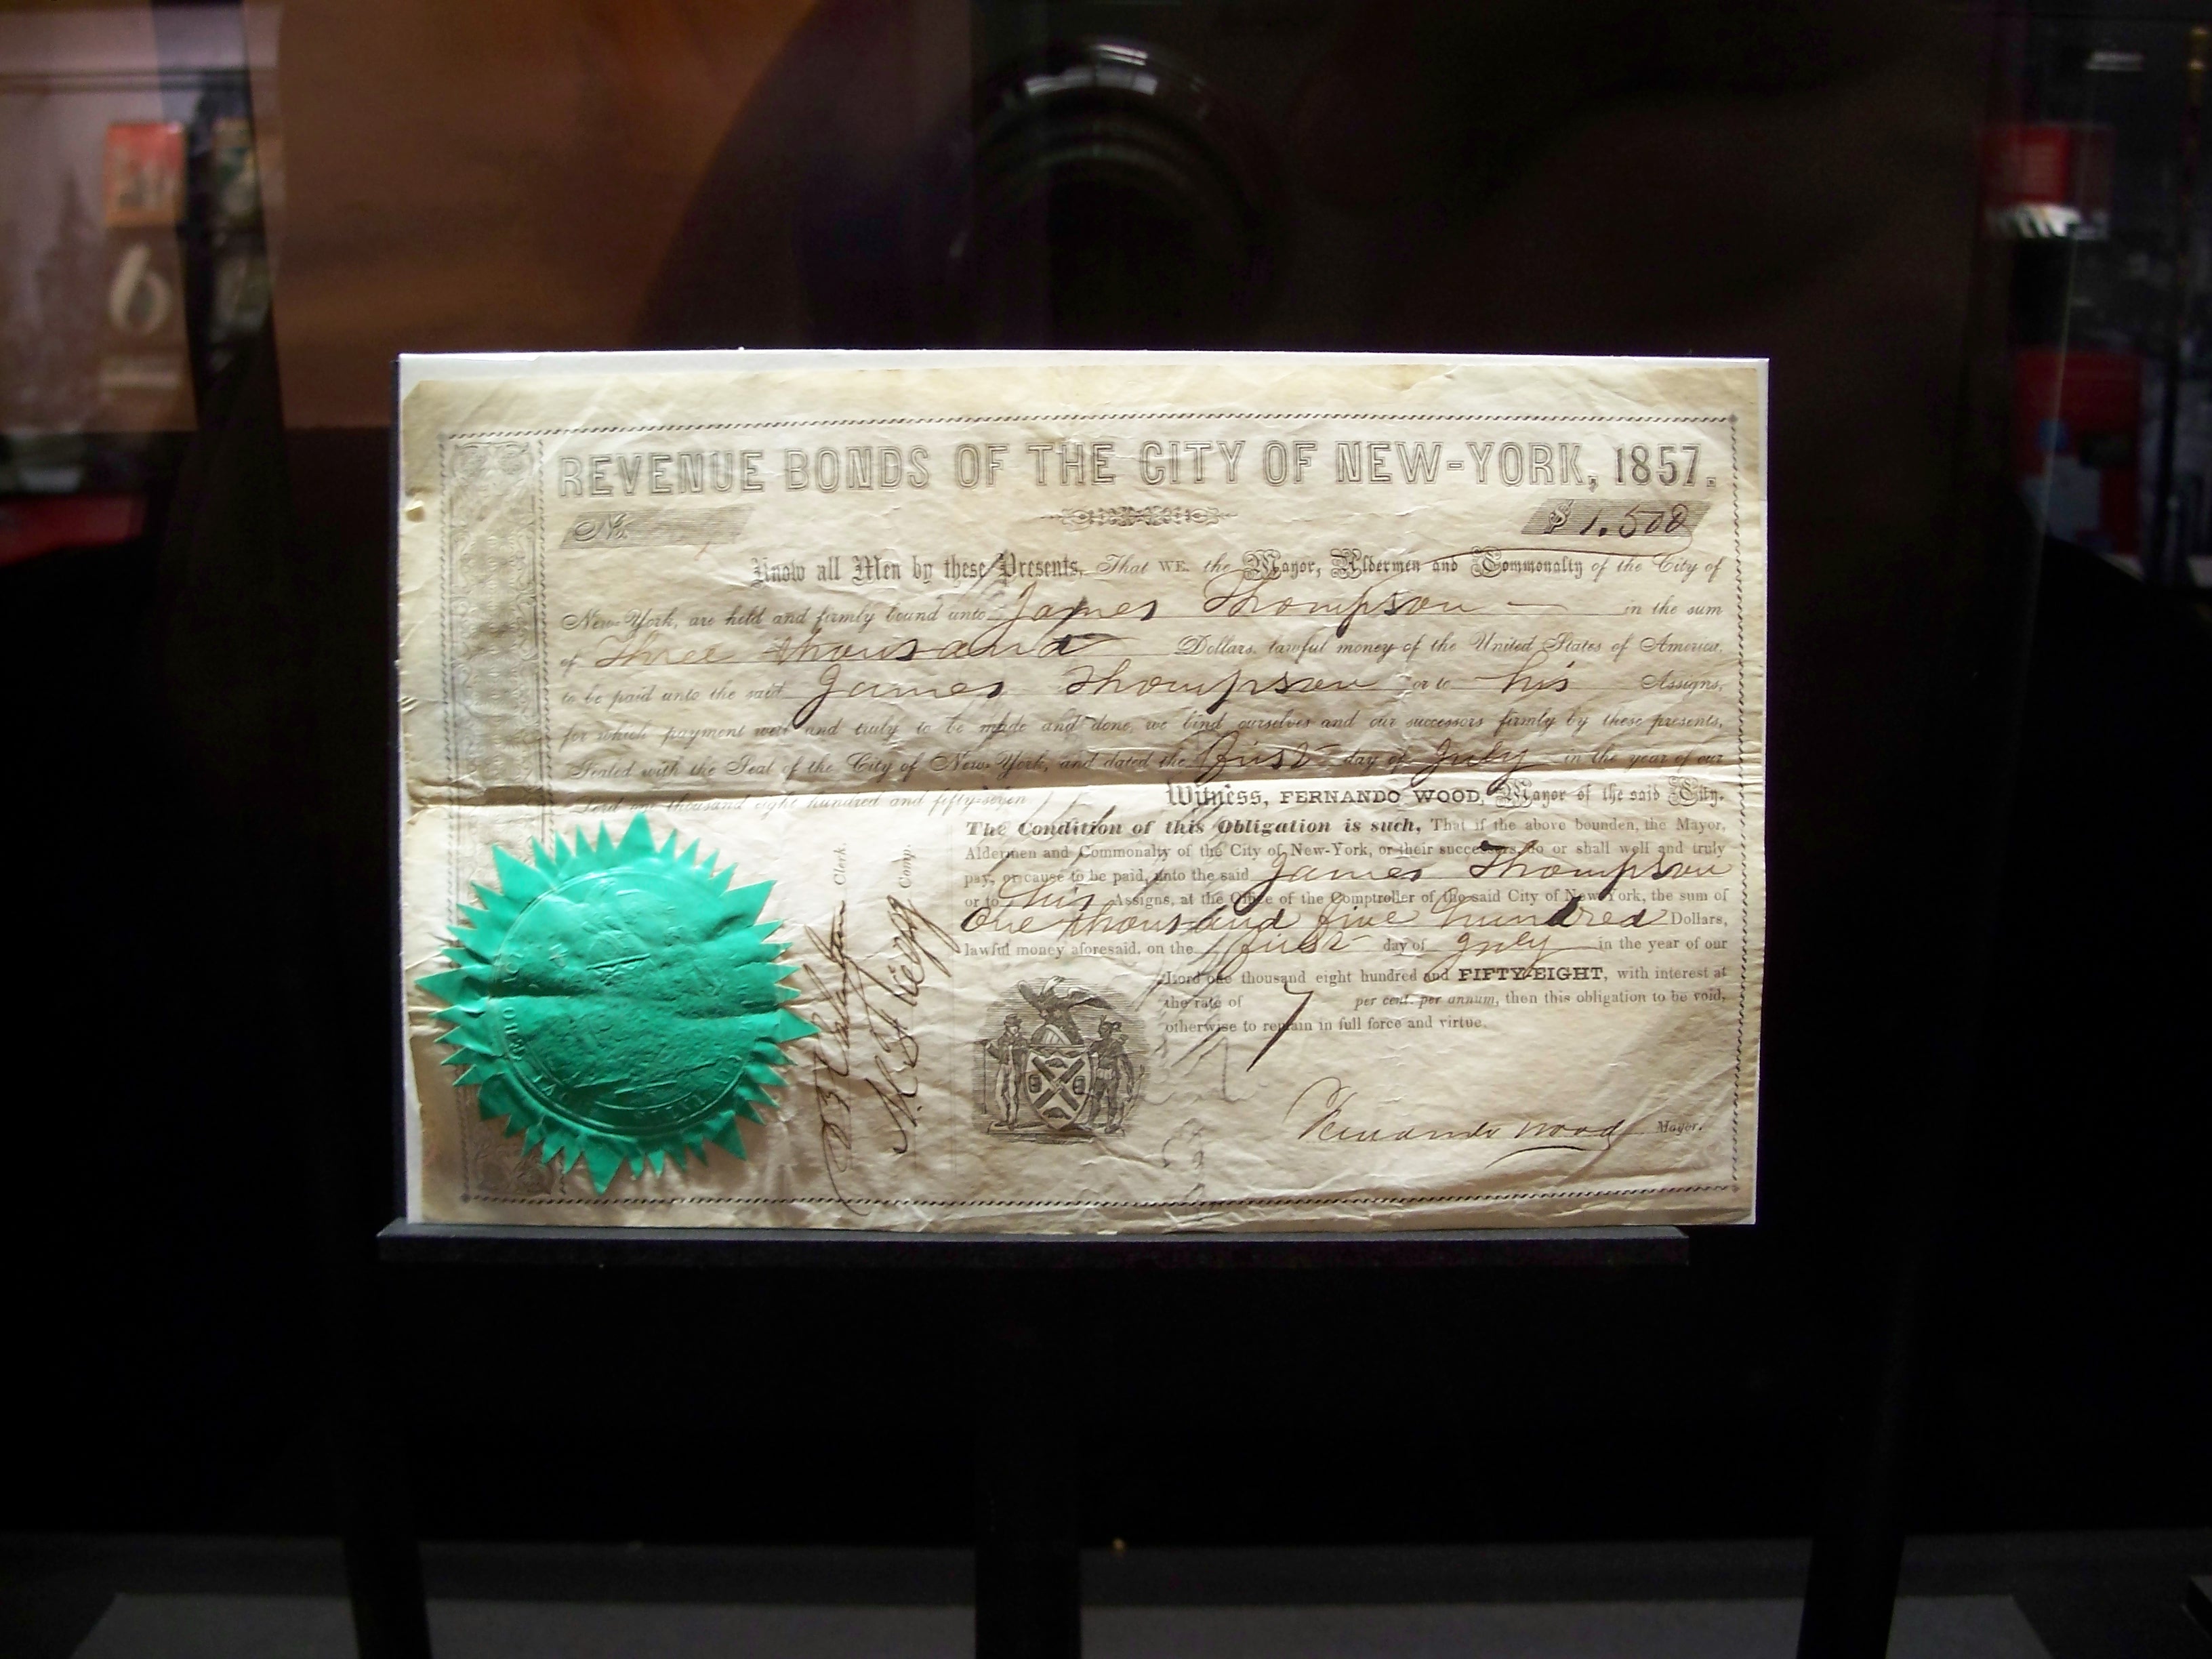 REVENUE BONDS OF THE CITY OF NEW-YORK, 1857.
No. $ 1.500
Know all Men by these Presents, That WE, the Mayor, Aldermen and Commonalty of the City of
New-York, are held and firmly bound unto James Thompson — in the sum
of Three thousand Dollars, lawful money of the United States of America,
to be paid unto the said James Thompson or to his Assigns,
for which payment well and truly to be made and done, we bind ourselves and our successors firmly by these presents,
Sealed with the Seal of the City of New-York, and dated the first day of July in the year of our
Lord one thousand eight hundred and fifty-seven
Witness, FERNANDO WOOD, Mayor of the said City.
The Condition of this Obligation is such, That if the above bounden, the Mayor,
Aldermen and Commonalty of the City of New-York, or their successors, do or shall well and truly
pay, or cause to be paid, unto the said James Thompson
or to his Assigns, at the Office of the Comptroller of the said City of New York, the sum of
One thousand five hundred Dollars,
lawful money aforesaid, on the first day of July in the year of our
Lord one thousand eight hundred and FIFTY-EIGHT, with interest at
the rate of 7 per cent. per annum, then this obligation to be void,
otherwise to remain in full force and virtue.
Fernando Wood Mayor.
Clerk.
Comp.
6